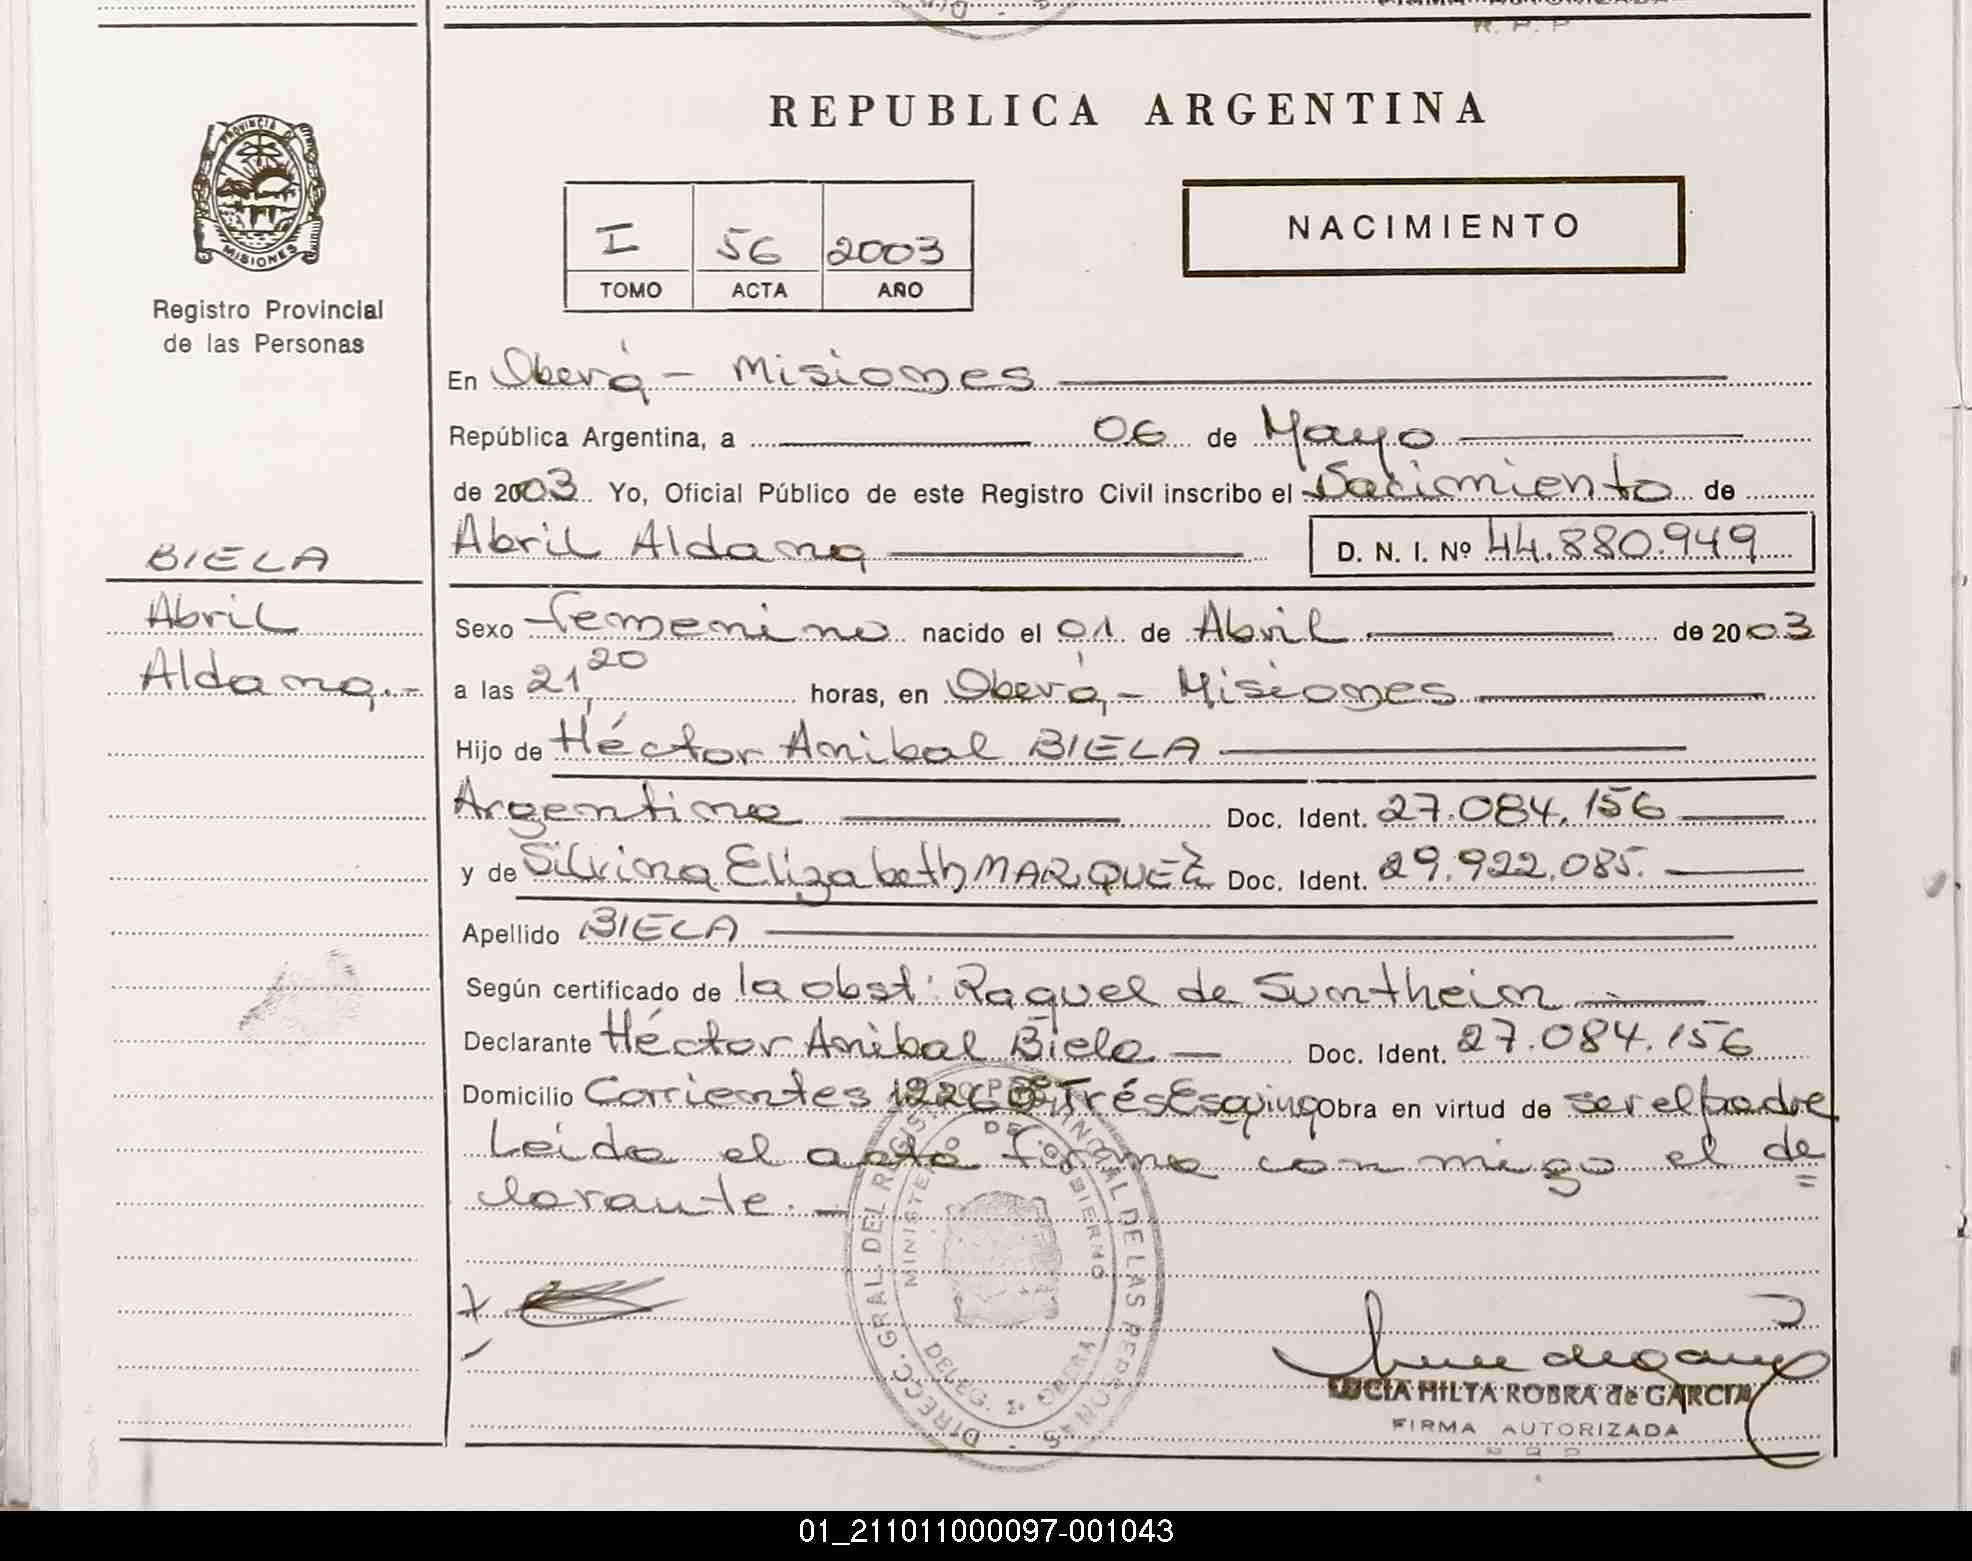 R. P. P
REPUBLICA ARGENTINA
PROVINCIA DE MISIONES
Registro Provincial
de las Personas
I 56 2003
TOMO ACTA AÑO
NACIMIENTO
En Oberá - Misiones
República Argentina, a 06 de Mayo
de 2003 Yo, Oficial Público de este Registro Civil inscribo el Nacimiento de
Abril Aldana D. N. I. Nº 44.880.949
BIELA
Abril
Aldana.-
Sexo Femenino nacido el 01 de Abril de 2003
a las 21,20 horas, en Oberá, - Misiones
Hijo de Héctor Anibal BIELA
Argentino Doc. Ident. 27.084.156
y de Silvina Elizabeth MARQUEZ Doc. Ident. 29.922.085.
Apellido BIELA
Según certificado de la obst: Raquel de Suntheim
Declarante Héctor Anibal Biela Doc. Ident. 27.084.156
Domicilio Corrientes Trés Esquinas Obra en virtud de ser el padre
Leida el acta firma con migo el de
clarante. -
DIRECC. GRAL. DEL REGISTRO PROVINCIAL DE LAS PERSONAS
MINISTERIO DE GOBIERNO
DELEG. OBERA
LUCIA HILTA ROBRA de GARCIA
FIRMA AUTORIZADA
01_211011000097-001043